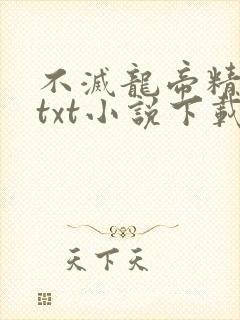 不滅龍帝精
txt小説下載
天下天